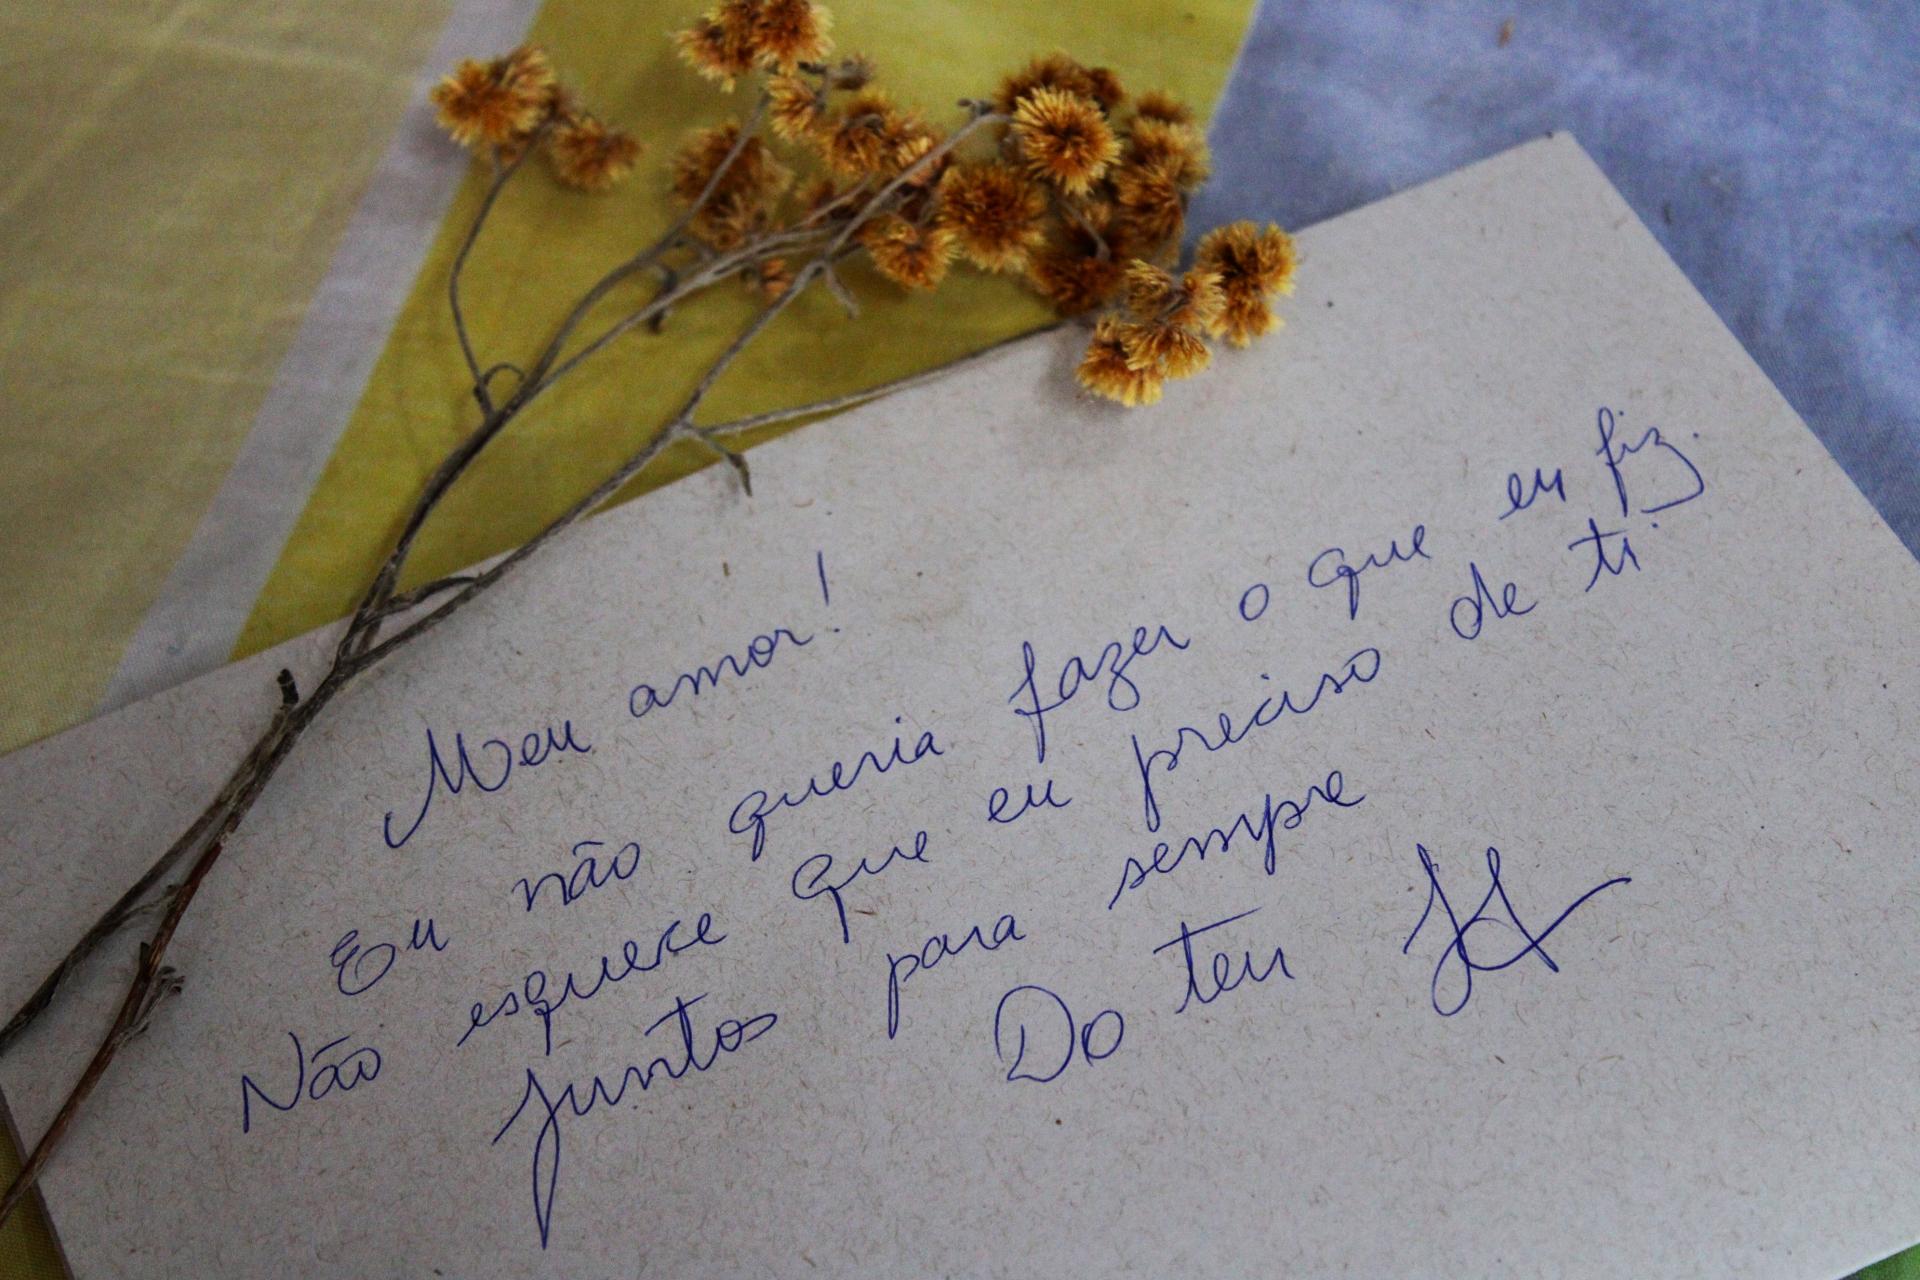 Meu amor!
Eu não queria fazer o que eu fiz.
Não esquece que eu preciso de ti.
Juntos para sempre
Do teu